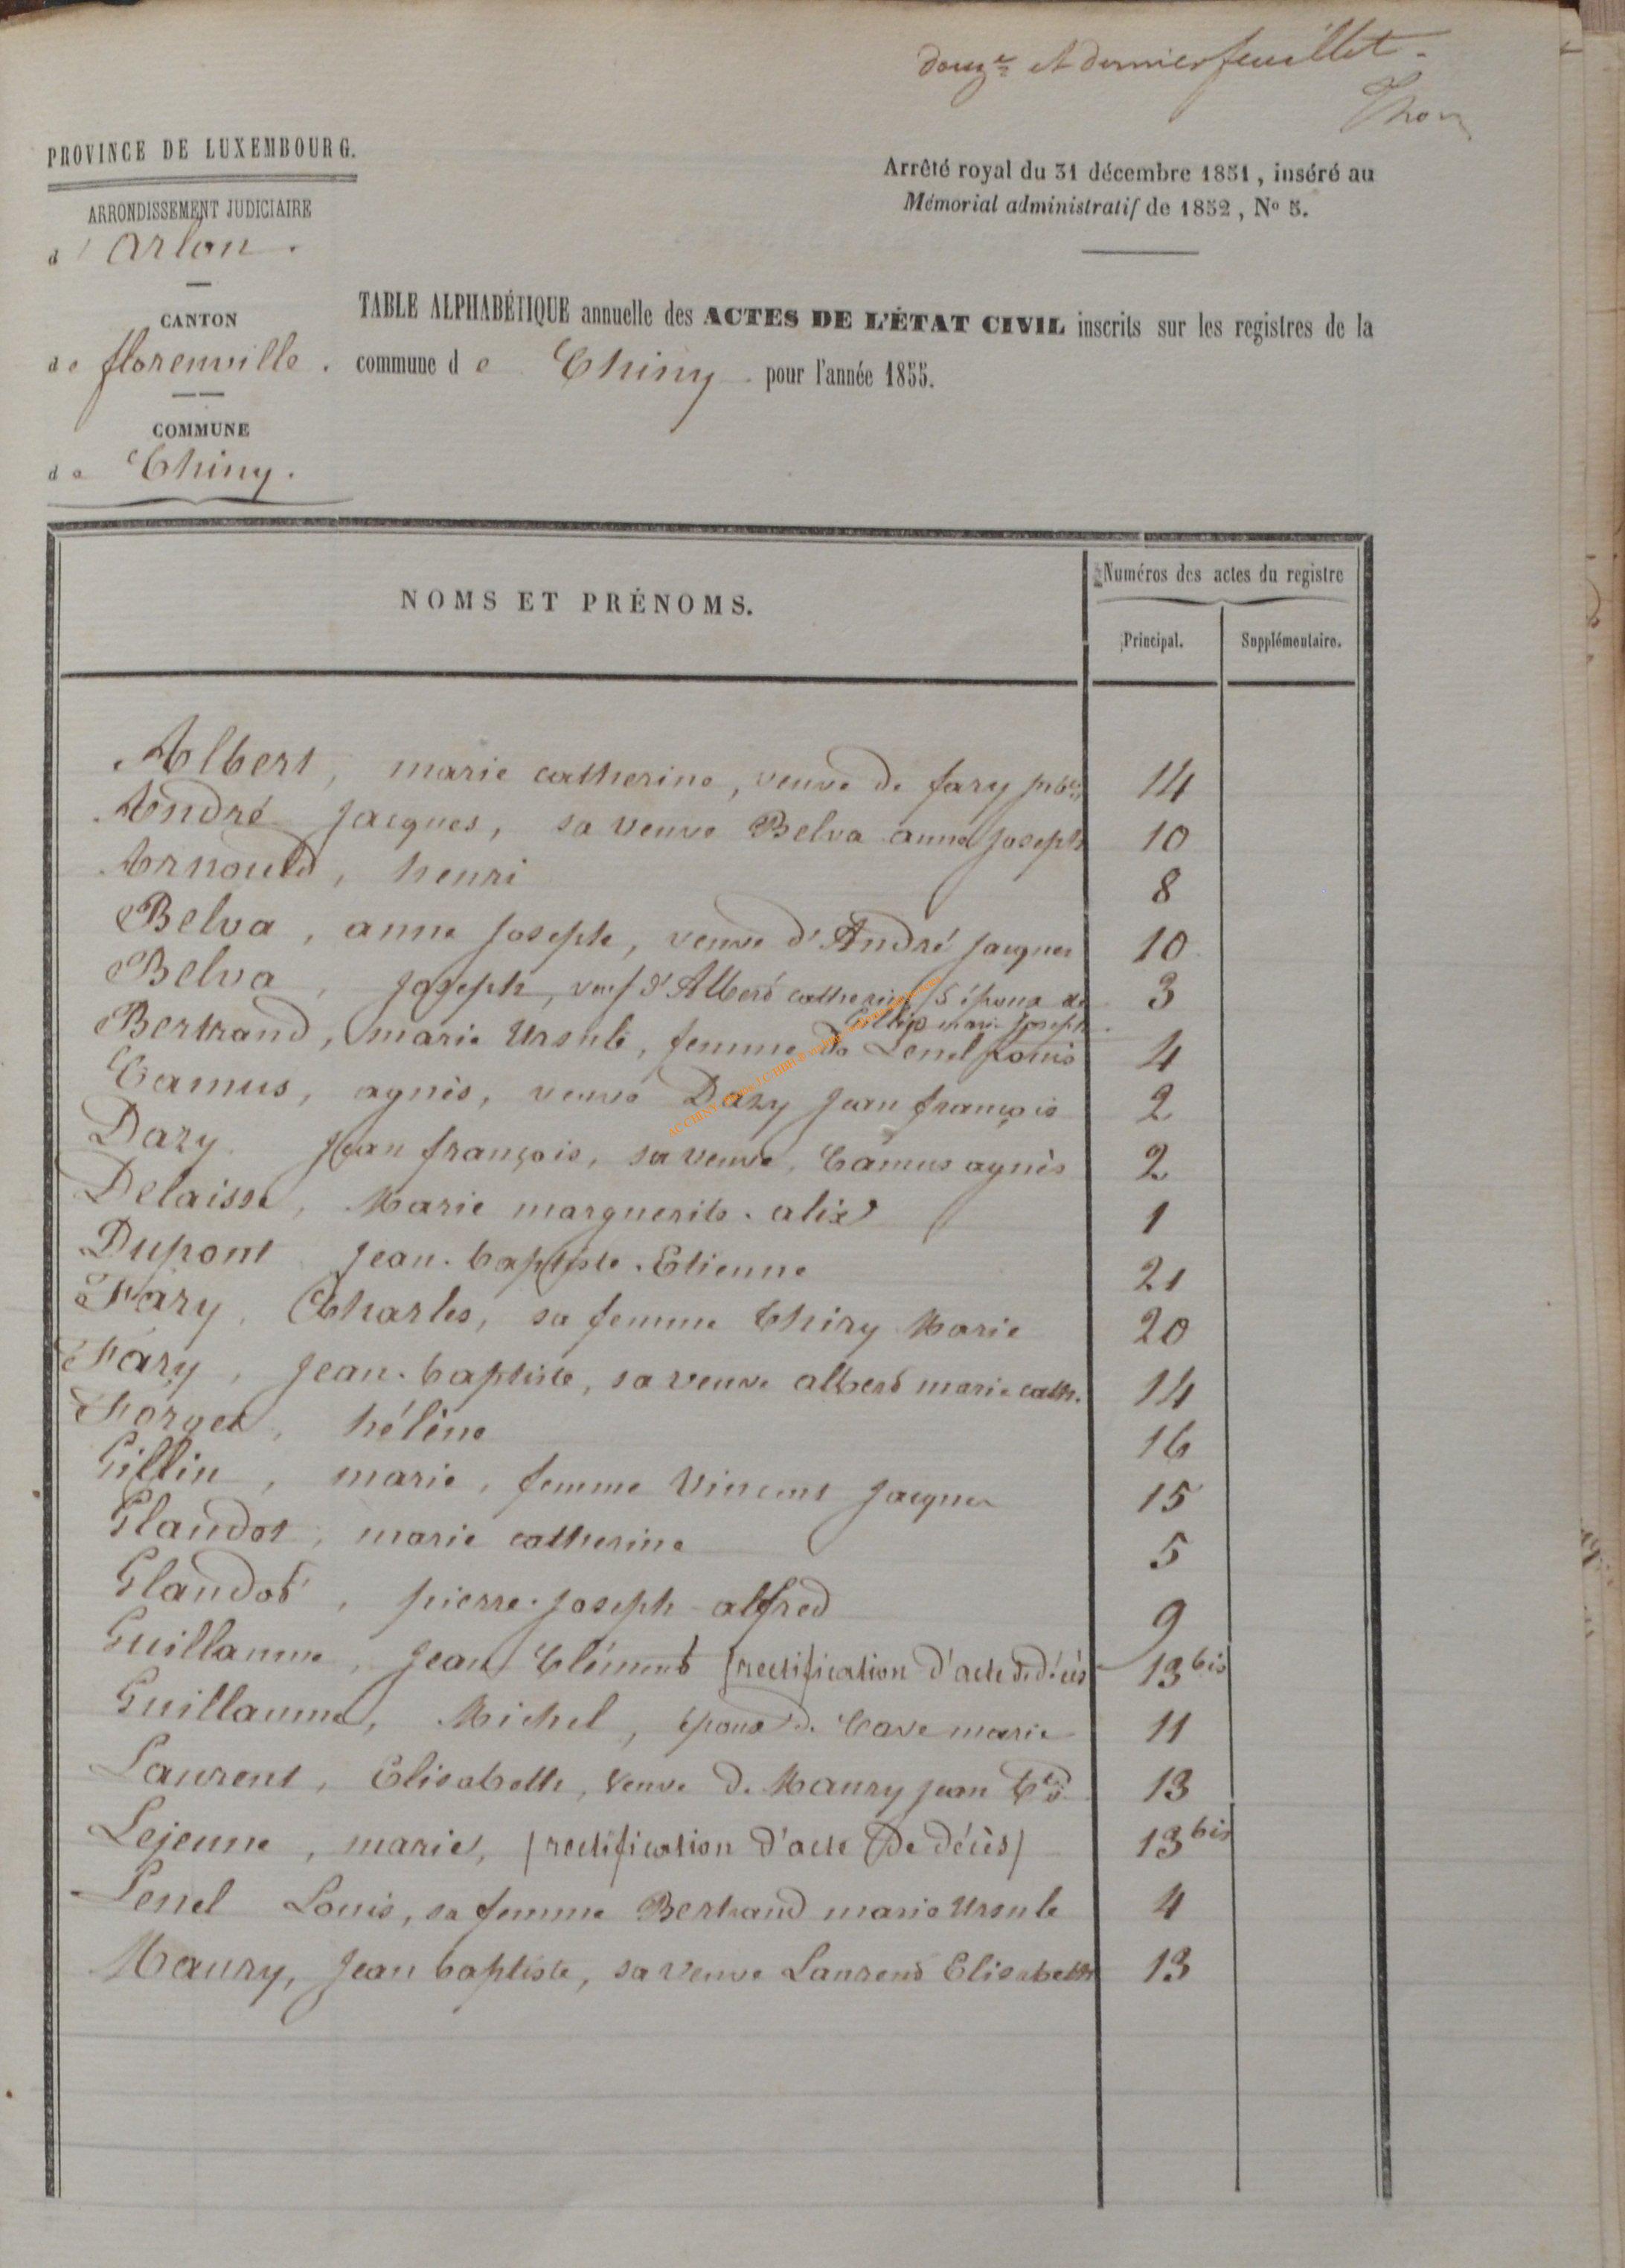 douz.e et dernier feuillet.
Thon
PROVINCE DE LUXEMBOURG.
ARRONDISSEMENT JUDICIAIRE
d'Arlon.
CANTON
de florenville.
COMMUNE
de Chiny.
Arrêté royal du 31 décembre 1851, inséré au
Mémorial administratif de 1852, No 5.
TABLE ALPHABÉTIQUE annuelle des ACTES DE L'ÉTAT CIVIL inscrits sur les registres de la
commune de Chiny pour l'année 1855.
NOMS ET PRÉNOMS.
Numéros des actes du registre
Principal.
Supplémentaire.
Albert, marie catherine, veuve de fary 14
André Jacques, sa veuve Belva anne Joseph 10
Arnould, henri 8
Belva, anne Joseph, veuve d'André Jacques 10
Belva, Joseph, veuf d'Albert catherine, époux de 3
marie Joseph
Bertrand, marie Ursule, femme de Lenel Louis 4
Camus, agnès, veuve Dazy Jean françois 2
Dazy Jean françois, sa veuve, Camus agnès 2
Delaisse, Marie marguerite. alix 1
Dupont Jean. baptiste. Etienne 21
Fary, Charles, sa femme Thiry Marie 20
Fary, Jean. baptiste, sa veuve albert marie cath. 14
Forget, hélène 16
Gillin, marie, femme Vincent Jacques 15
Glaudot, marie catherine 5
Glaudot, pierre. Joseph-alfred 9
Guillaume, Jean Clément (rectification d'acte de décès 13 bis
Guillaume, Michel, époux de Cave marie 11
Laurent, Elisabeth, veuve de Maury jean bte 13
Lejeune, marie, (rectification d'acte de décès) 13 bis
Lenel Louis, sa femme Bertrand marie Ursule 4
Maury, Jean baptiste, sa veuve Laurent Elisabeth 13